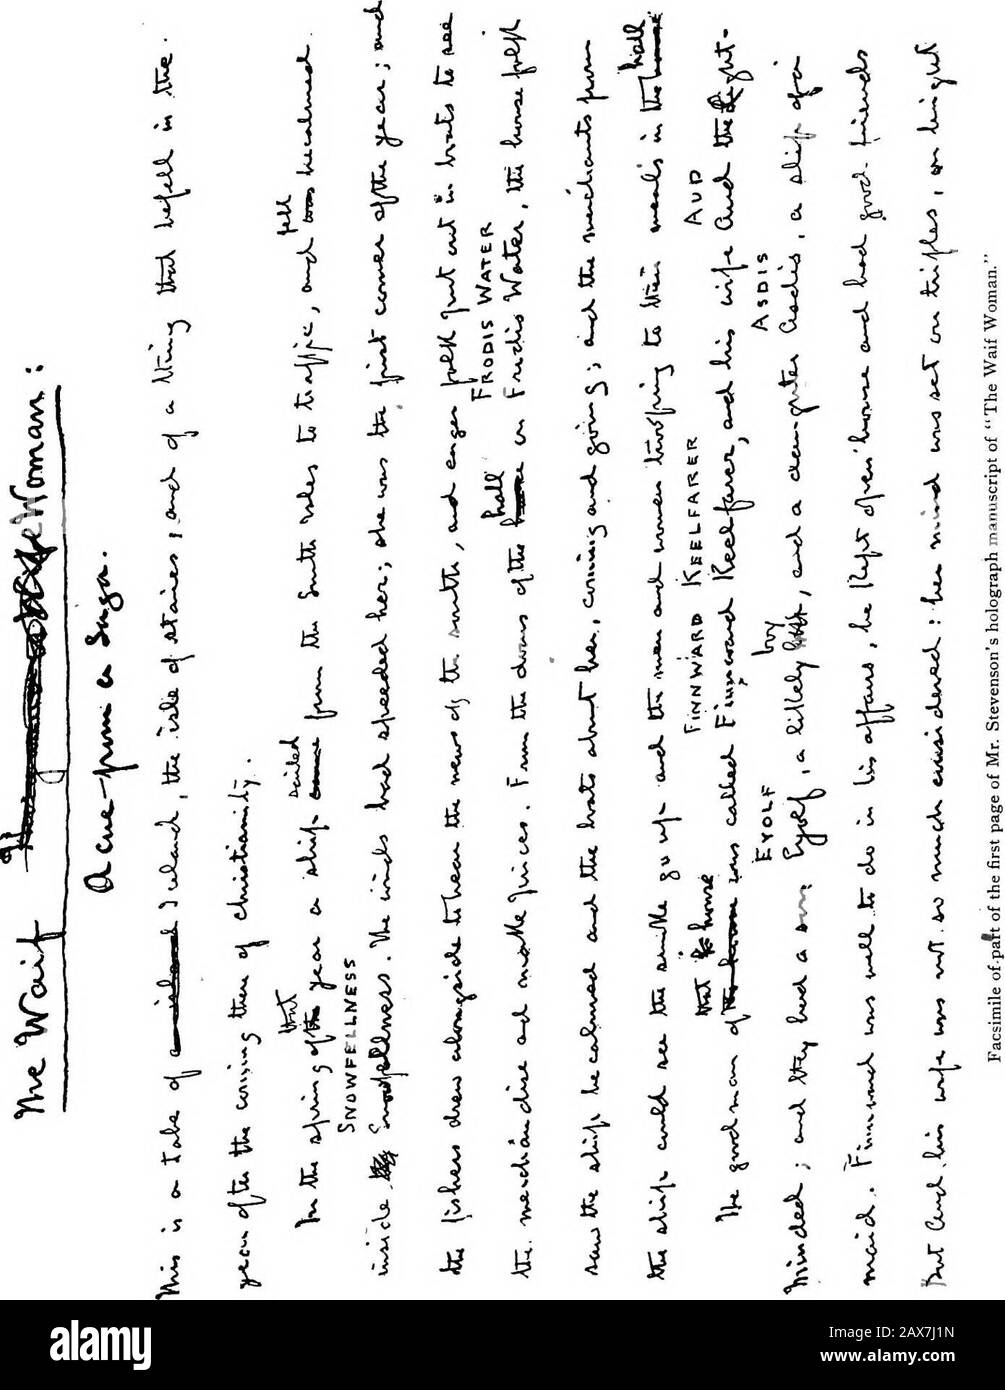 The Waif Woman:
A cue – from a Saga.
This is a tale of a island Iceland, the isle of stories, and of a thing that befell in the
year of the coming there of christianity.
that sailed fell
In the spring of the year a ship came from the South isles to traffic, and was becalmed
SNOWFELLNESS
inside Snowfellness. The winds had speeded her; she was the first comer of the year; and
the fishers drew alongside to hear the news of the south, and eager folk put out in boats to see
FRODIS WATER
hall
the merchandise and make prices. From the doors of the house on Frodis Water, the house folk
saw the ship becalmed and the boats about her, coming and going; and the merchants from
hall
the ship could see the smoke go up and the men and women trooping to their meals in the house
that house FINNWARD KEELFARER AUD
The goodman of the house was called Finnward Keelfarer, and his wife Aud the Light-
EYOLF boy ASDIS
Minded; and they had a son Eyolf, a likely, and a daughter Asdis, a slip of a
maid. Finnward was well to do in his affairs, he kept open house and had good friends
But Aud his wife was not so much considered: her mind was set on trifles, on bright
Facsimile of part of the first page of Mr. Stevenson's holograph manuscript of "The Waif Woman."
alamy
Image ID: 2AX7J1N
www.alamy.com